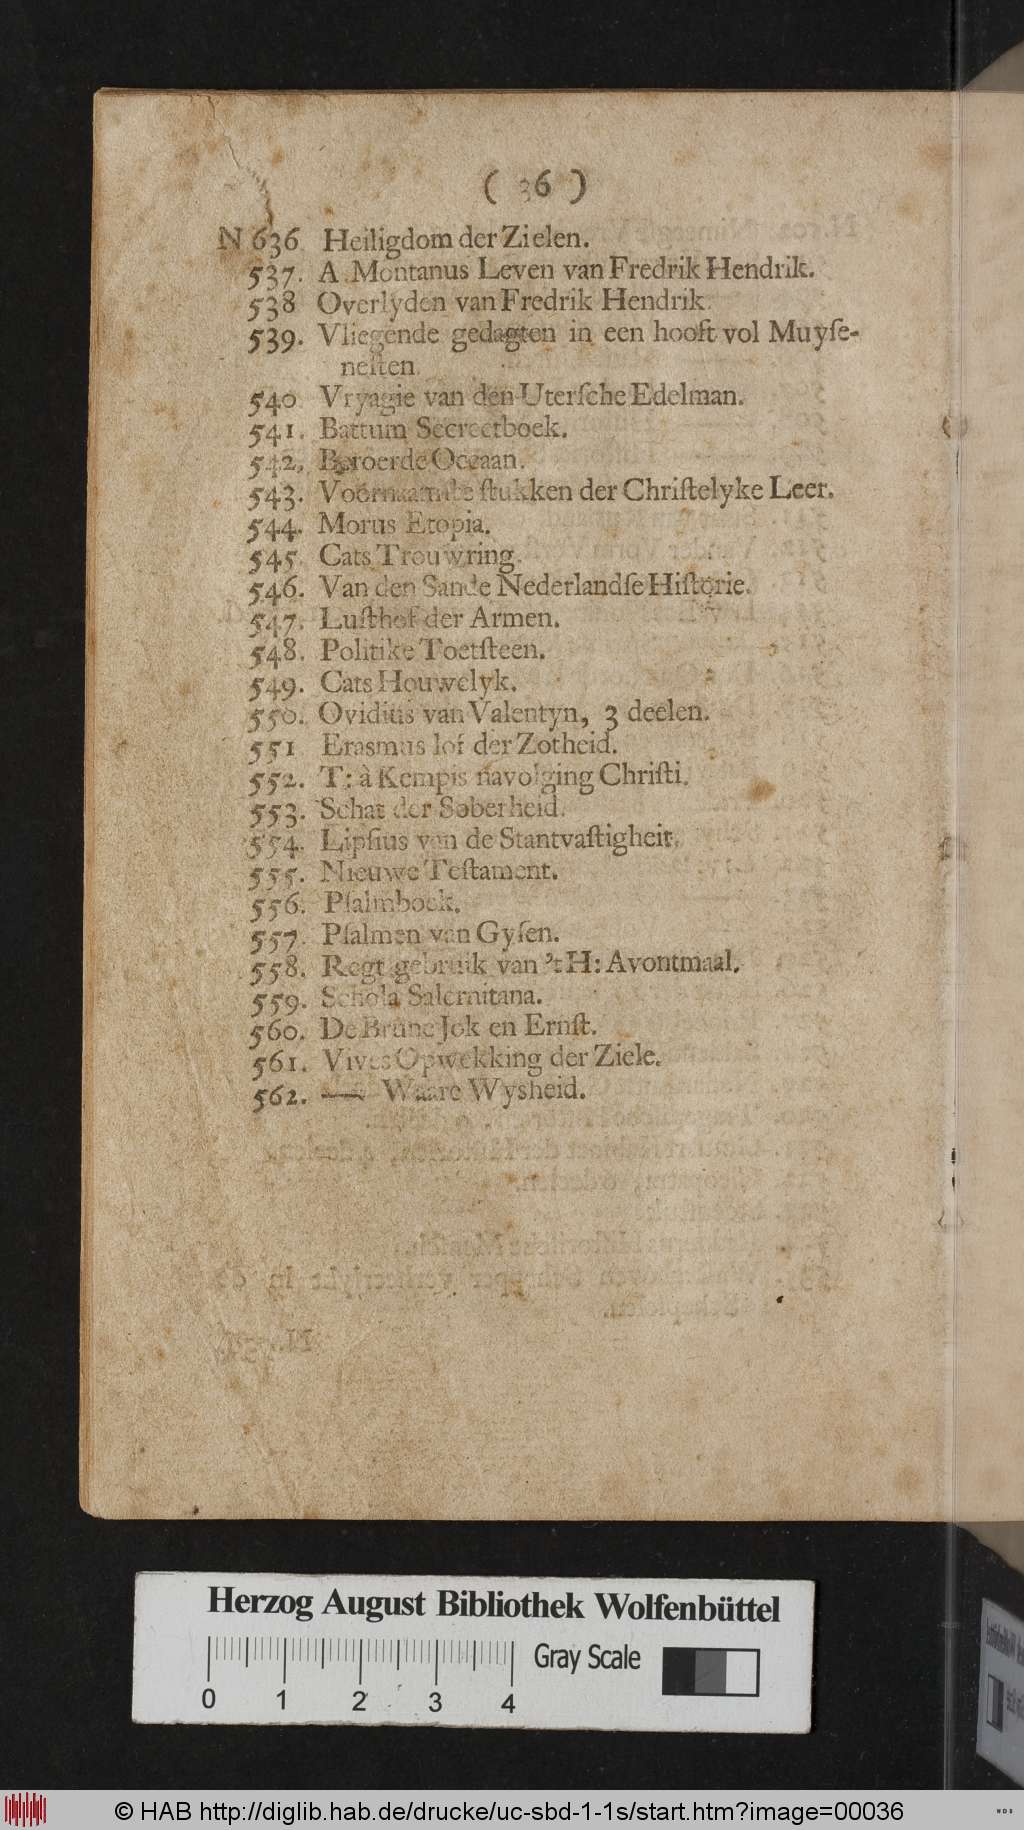 ( 36 )
N 636 Heiligdom der Zielen.
537. A Montanus Leven van Fredrik Hendrik.
538 Overlyden van Fredrik Hendrik.
539. Vliegende gedagten in een hooft vol Muyſe-
neſten.
540 Vryagie van den Uterſche Edelman.
541. Battum Secreetboek.
542. Beroerde Oceaan.
543. Voornaamſte ſtukken der Chriſtelyke Leer.
544. Morus Etopia.
545 Cats Trouwring.
546. Van den Sande Nederlandſe Hiſtorie.
547. Luſthof der Armen.
548. Politike Toetſteen.
549. Cats Houwelyk.
550. Ovidius van Valentyn, 3 deelen.
551 Erasmus lof der Zotheid.
552. T: à Kempis navolging Chriſti.
553. Schat der Soberheid.
554. Lipſius van de Stantvaſtigheit.
555. Nieuwe Teſtament.
556. Pſalmboek.
557. Pſalmen van Gyſen.
558. Regt gebruik van 't H: Avontmaal.
559. Schola Salernitana.
560. De Brune Jok en Ernſt.
561. Vives Opwekking der Ziele.
562. —— Waare Wysheid.
Herzog August Bibliothek Wolfenbüttel
Gray Scale
0 1 2 3 4
© HAB http://diglib.hab.de/drucke/uc-sbd-1-1s/start.htm?image=00036